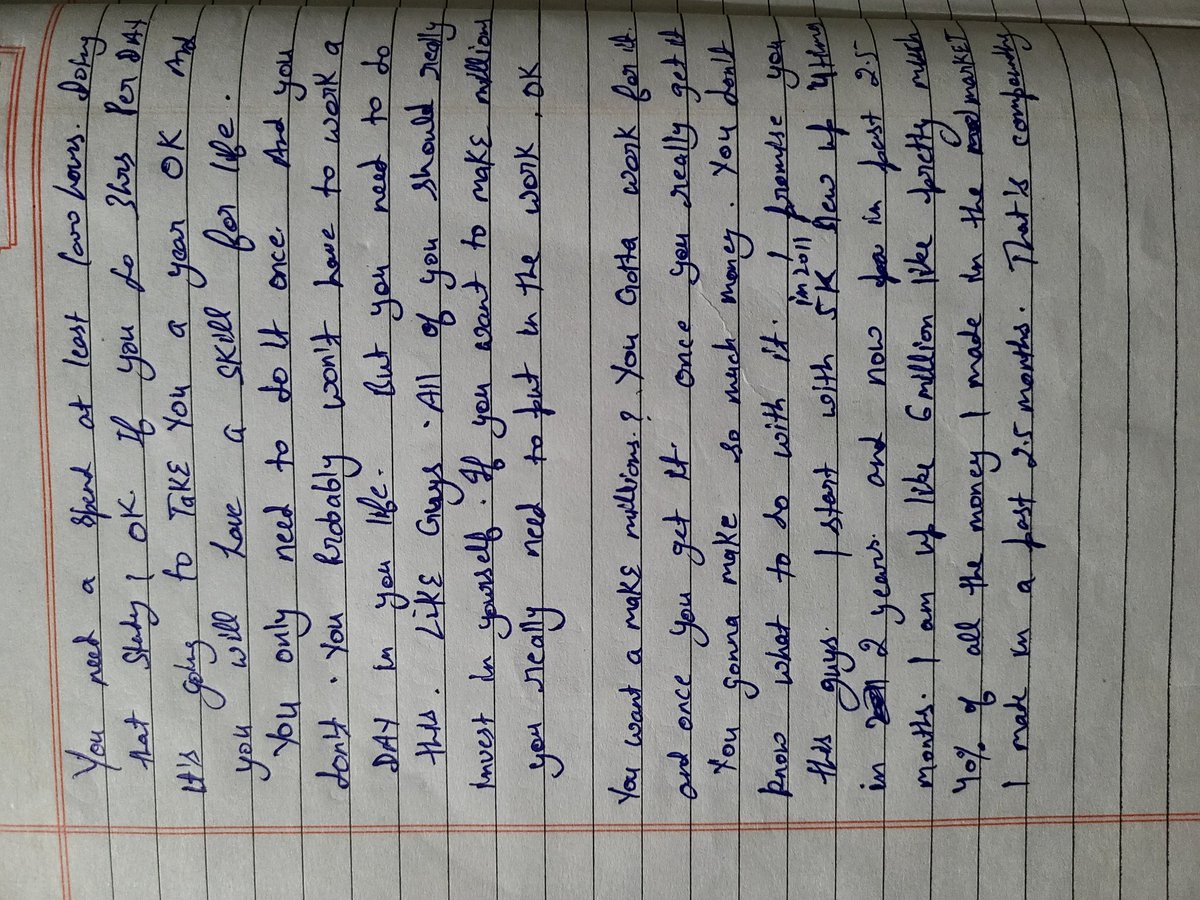 You need a spend at least two hours. Doing
that study, OK. If you do 3hrs Per DAY
It's going to TAKE You a year OK And
you will have a SKILL for life.
You only need to do it once. And you
don't. You Probably won't have to work a
DAY in you life. But you need to do
this. LIKE Guys. All of you should really
invest in yourself. If you want to make million
you really need to put in the work. OK
You want a make millions? You Gotta work for it.
and once you get it. once you really get it
You gonna make so much money. You don't
know what to do with it. I promise you
this guys. I start with 5K in 2011 up
in 2 years. and now in past 2.5
months. I am up like 6 million like pretty much
40% of all the money I made in the market
I made in a past 2.5 months. That's